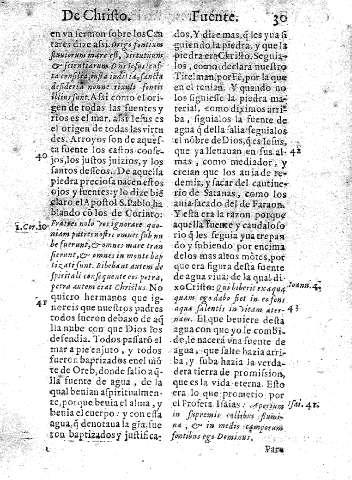 De Christo. Fuente. 30
en vn sermon sobre los Can-
tares dize assi. Origo fontium
fluuiorum mare est, virtutum
& scientiarum Dominus Iesus. Cun-
cta consilia, iusta iudicia, sancta
desideria nonne riuuli fontis
illius sunt. Assi como el origen
de todas las fuentes y
rios es el mar, assi Iesus es
el origen de todas las virtu
des. Arroyos son de aques-
ta fuente los castos conse-
40
jos, los justos juizios, y los
santos desseos. De aquella
piedra preciosa nacen estos
ojos y fuentes: y lo dize biē
claro el Apostol S. Pablo, ha
blando cō los de Corinto:
1. Cor. 10
Fratres nolo vos ignorare quo-
niam patres nostri omnes sub nu
be fuerunt, & omnes mare tran
sierunt, & omnes in monte bap
tizati sunt. Bibebant autem de
spiritali consequente eos petra,
petra autem erat Christus. No
41
quiero hermanos que ig-
noreis que nuestros padres
todos fueron debaxo de aq̄
lla nube con que Dios los
defendia. Todos passarō el
mar a pie enjuto, y todos
fueron baptizados en el mō
te de Oreb, donde salio aq̄
lla fuente de agua, de la
qual beuian aspiritualmen-
te, porque beuia el alma, y
beuia el cuerpo: y con essa
agua q̄ denotaua la gfa, fue
ron baptizados y justifica-
dos. Y dize mas, q̄ les yua si
guiendo la piedra, y que la
piedra era Christo. Seguia-
los, como declara nuestro
Titelman, por Fè, por la que
en el tenian. Y quando no
los siguiesse la piedra mate-
rial, como diximos arri
ba, siguialos la fuente de
agua q̄ della salia seguialos
el nōbre de Dios, q̄ es Iesus,
42
que ya lleuauan en sus al-
mas, como mediador, y
creian que los auia de re-
demir, y sacar del cautiue-
rio de Satanas, como los
auia sacado del de Faraon.
Y esta era la razon porque
aquella fuente y caudaloso
rio q̄ les seguia yua trepan
do y subiendo por encima
delos mas altos mōtes, por
que era figura desta fuente
de agua viua: de la qual di-
xo Christo: Qui biberit ex aqua
Ioann. 4.
quam ego dabo fiet in eo fons
aquæ salientis in vitam æter-
43
nam. El que beuiere desta
agua con que yo le combi-
de, le nacerá vna fuente de
agua, que salte hazia arri-
ba, y suba hazia la verda-
dera tierra de promission,
que es la vida eterna. Esto
era lo que prometio por
el Profeta Isaias: Aperium
Isai. 41.
in supremis collibus flumi-
na, & in medio camporum
fontibus ego Dominus.
Para